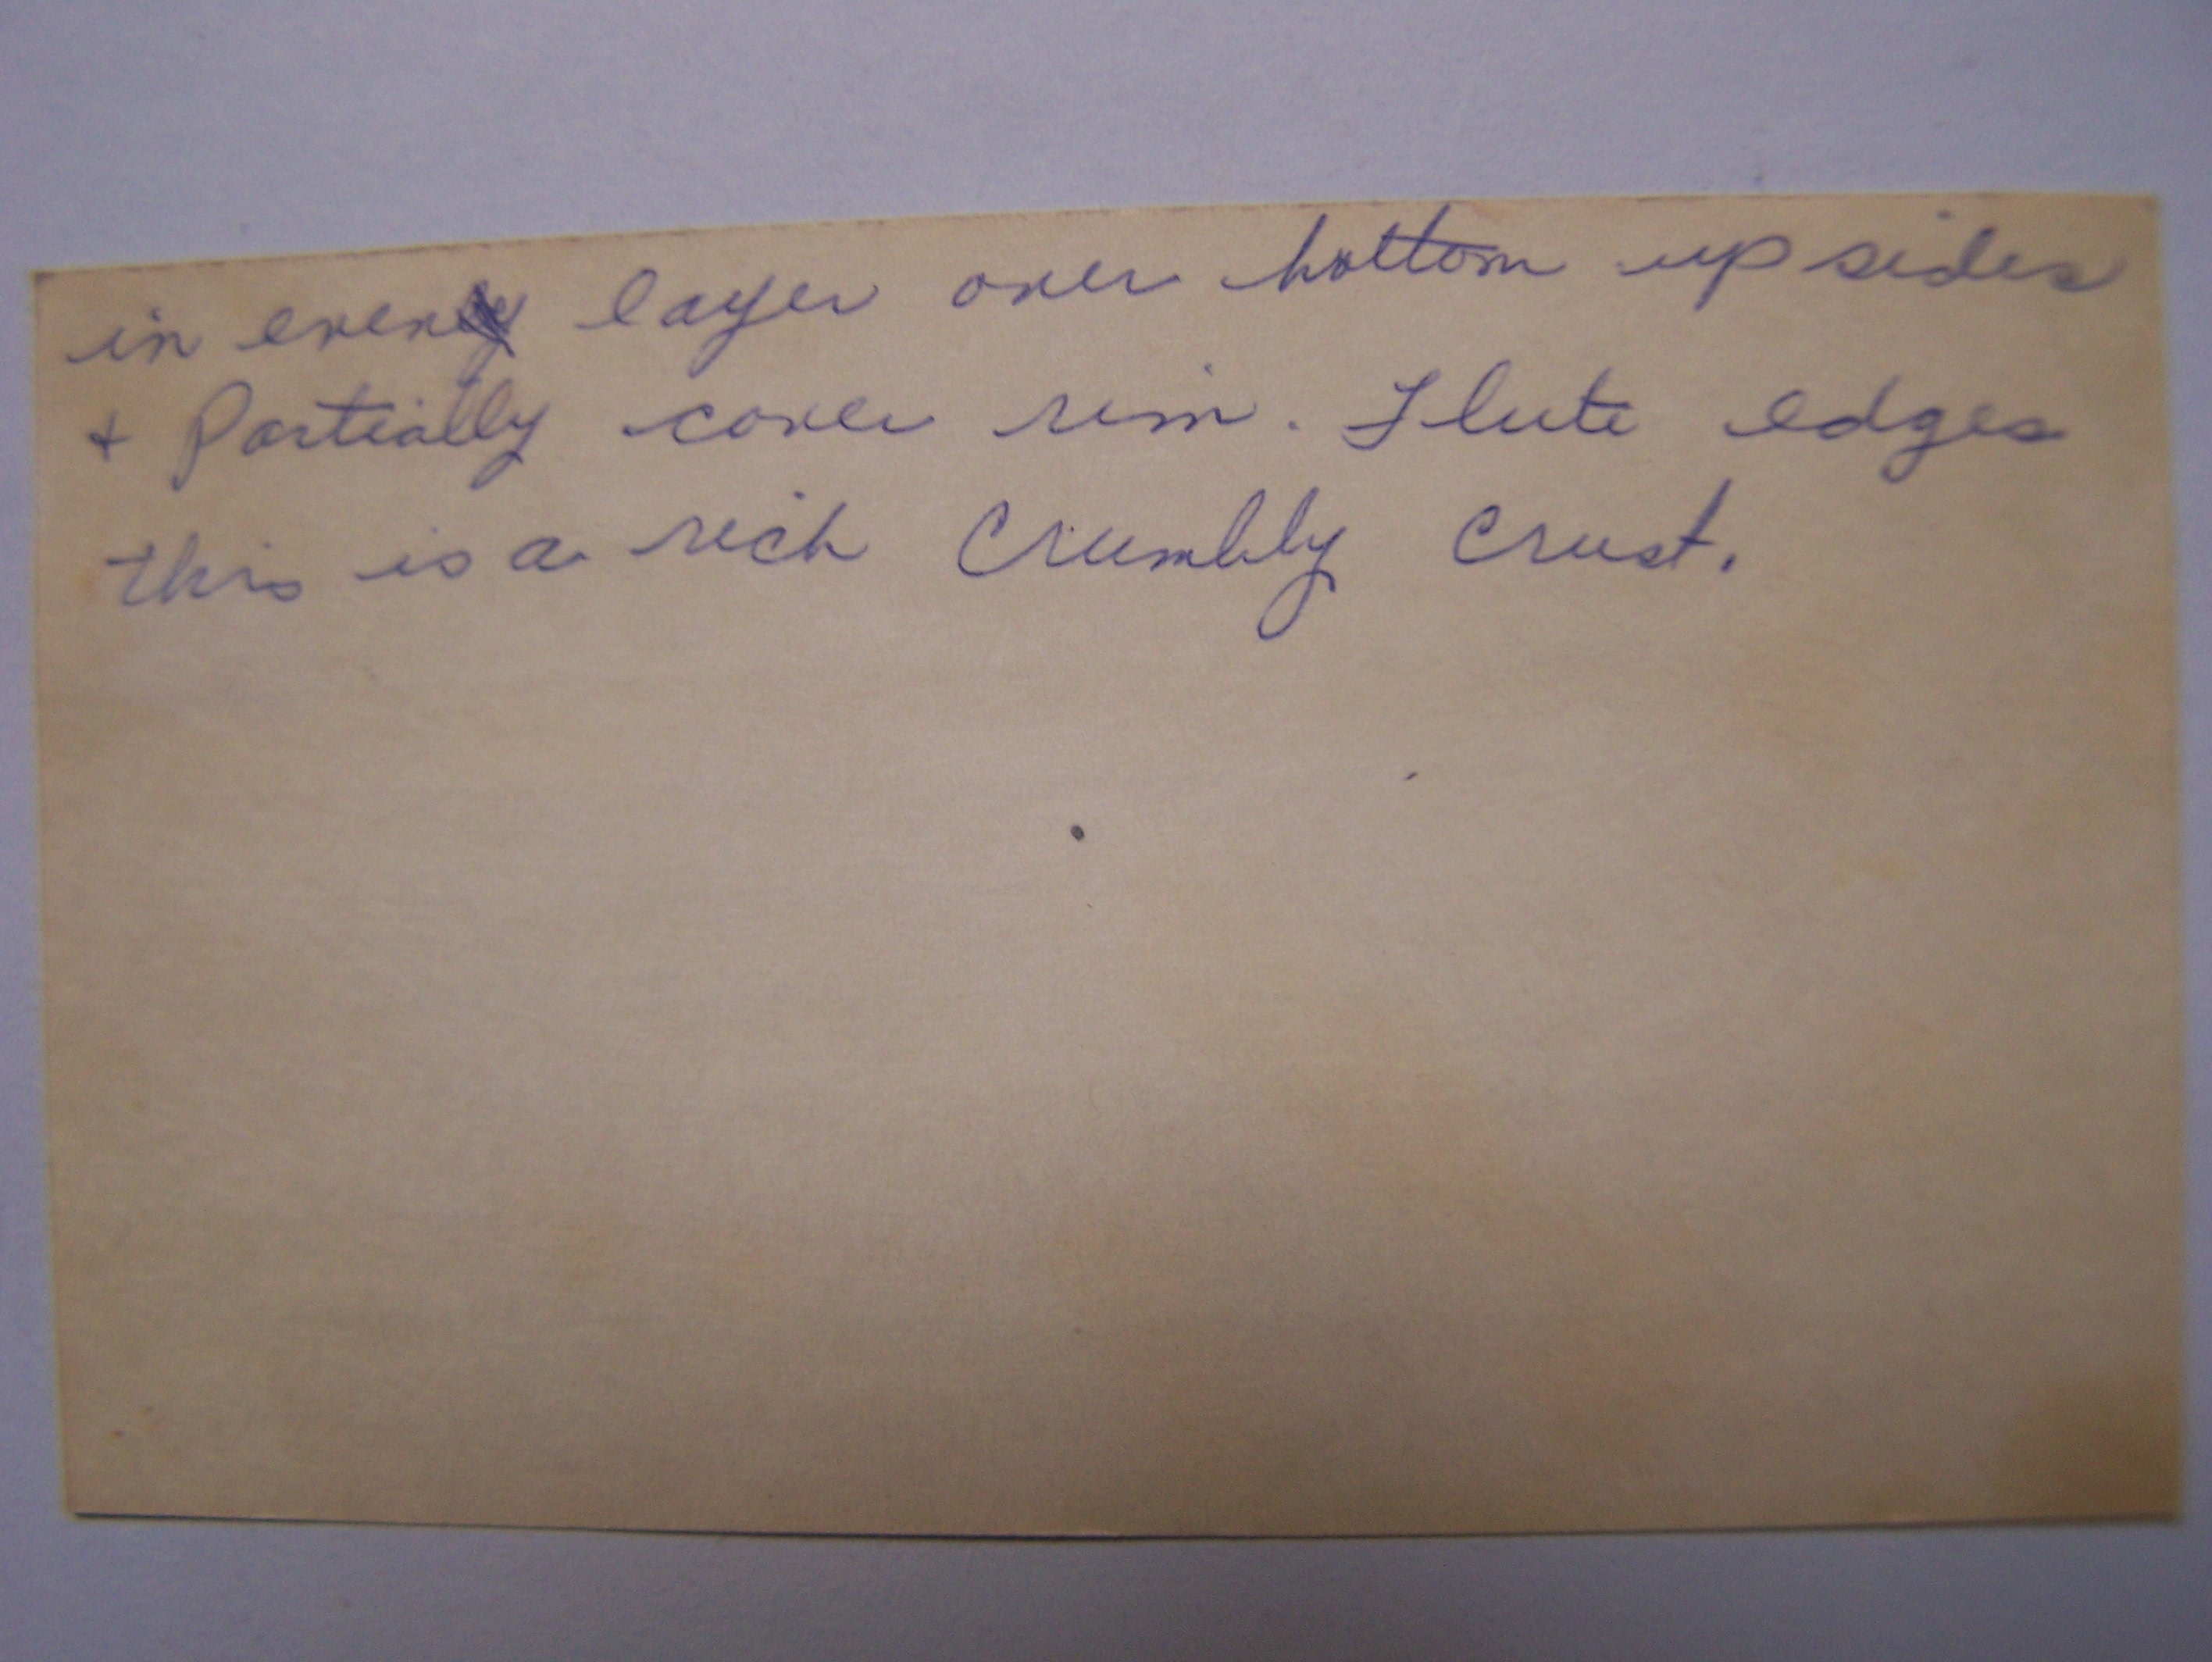 in even layer over bottom up sides
+ Partially cover rim. Flute edges
this is a rich Crumbly Crust.